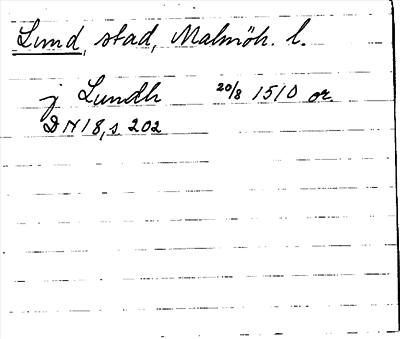 Lund, stad, Malmöh. l.
j Lundh 20/8 1510 or.
DN 18, s. 202